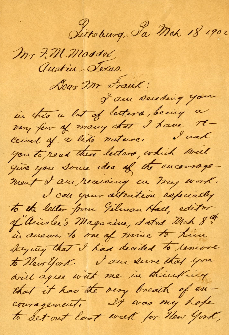 Pittsburg, Pa Mch 18 190
Mr F. M. Maddox
Austin Texas.
Dear Mr Frank:
I am sending you
in this a lot of letters, being a
very few of many that I have re-
ceived of a like nature. I ask
you to read these letters, which will
give you some idea of the encourage-
ment I am receiving in my work.
I call your attention especially
to the letter from Gilman Hall, editor
of Ainslee's Magazine, dated Mch 8th
in answer to one of mine to him
saying that I had decided to remove
to New York. I am sure that you
will agree with me in thinking
that it has the very breath of en-
couragement. It was my hope
to set out last week for New York,